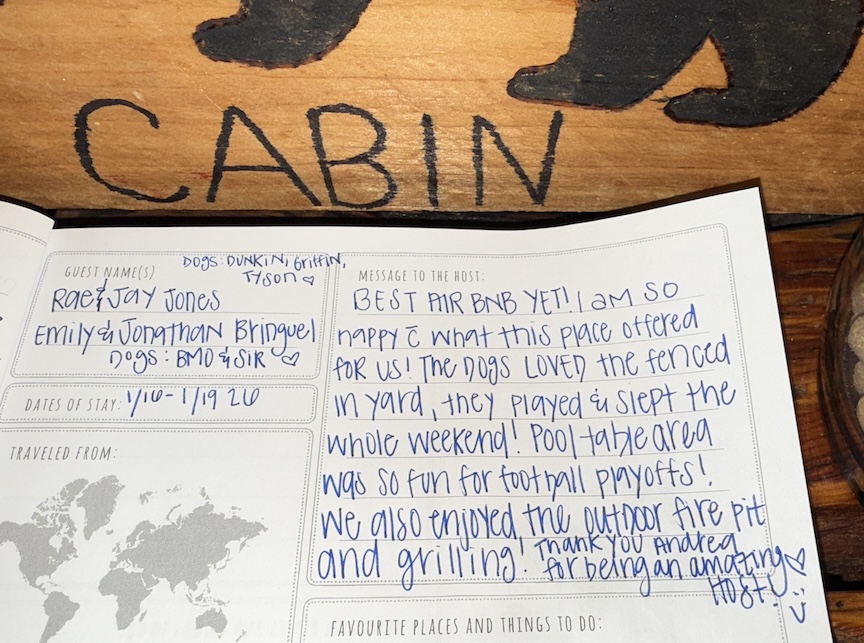 CABIN
GUEST NAME(S)
DOGS: DUNKIN, Griffin,
Tyson ♡
Rae & Jay Jones
Emily & Jonathan Bringuel
Dogs: BMO & SIR ♡
DATES OF STAY: 1/16 - 1/19 26
TRAVELED FROM:
MESSAGE TO THE HOST:
BEST AIR BNB YET! I am SO
happy c̄ what this place offered
for us! The Dogs LOVED the fenced
in yard, they played & slept the
whole weekend! Pool table area
was so fun for football playoffs!
We also enjoyed the outdoor fire pit
and grilling! Thank you Andrea
for being an amazing ♡
Host! :)
FAVOURITE PLACES AND THINGS TO DO: